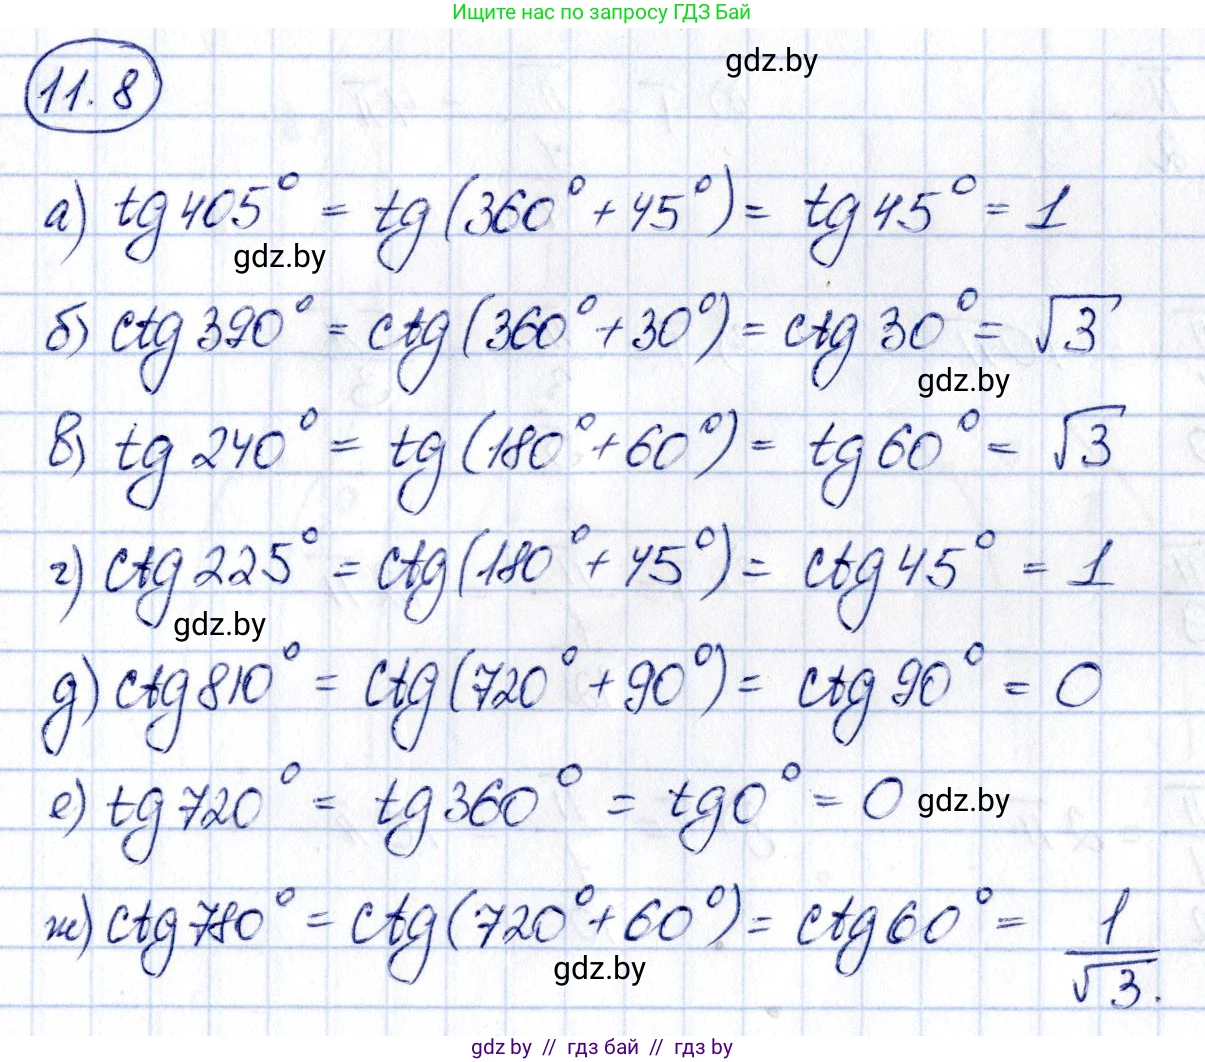 Ищите нас по запросу ГДЗ Бай
11.8
gdz.by
а) tg 405° = tg (360° + 45°) = tg 45° = 1
gdz.by
б) ctg 390° = ctg (360° + 30°) = ctg 30° = √3
gdz.by
в) tg 240° = tg (180° + 60°) = tg 60° = √3
г) ctg 225° = ctg (180° + 45°) = ctg 45° = 1
gdz.by
д) ctg 810° = ctg (720° + 90°) = ctg 90° = 0
е) tg 720° = tg 360° = tg 0° = 0
gdz.by
ж) ctg 780° = ctg (720° + 60°) = ctg 60° = 1/√3.
gdz.by
gdz by // гдз бай // гдз by